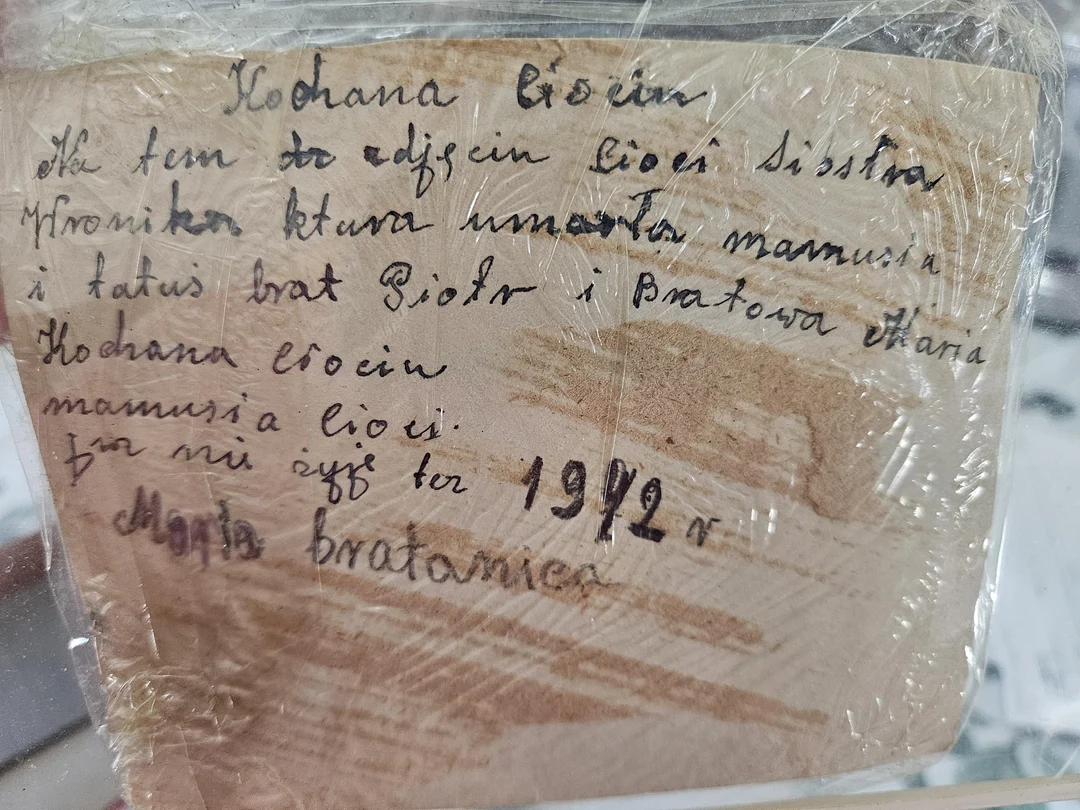 Kochana Ciociu
Na tem zdjęciu Cioci Siostra
Wronika ktura umarła mamusia
i tatuś brat Piotr i Bratowa Maria
Kochana Ciociu
mamusia Cioci.
nie żyję też 1972 r
Marta bratanica